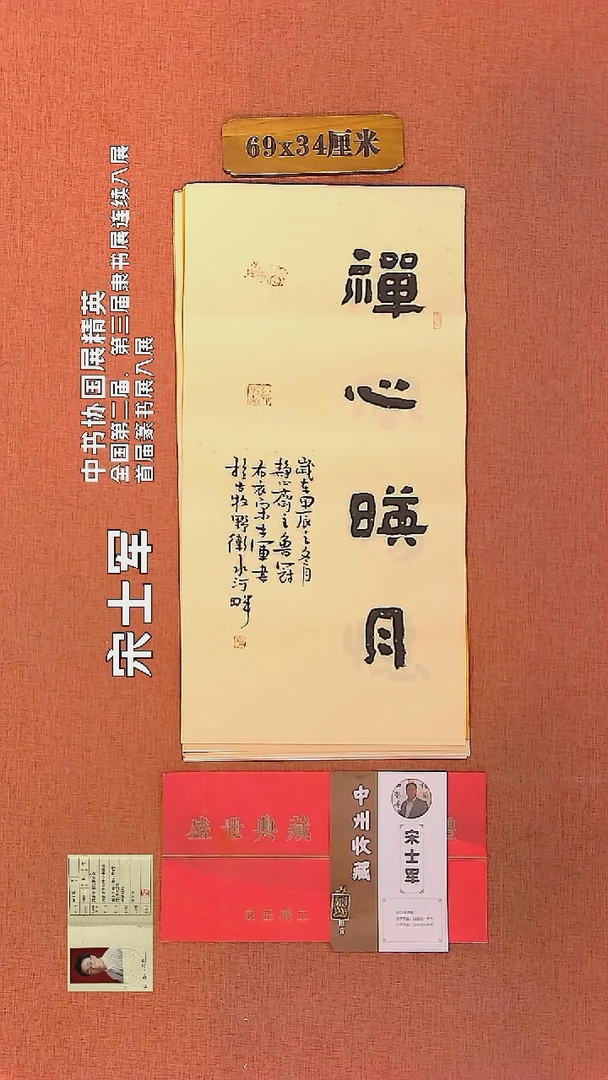 69x34厘米
禪心暎月
歲在甲辰之冬月
静心齋主魯冠
布衣宋士軍書
於古牧野衛水河畔
中书协国展精英
全国第二届·第三届隶书展连续入展
首届篆书展入展
宋士军
盛世典藏
良匠精工
中州收藏
宋士军